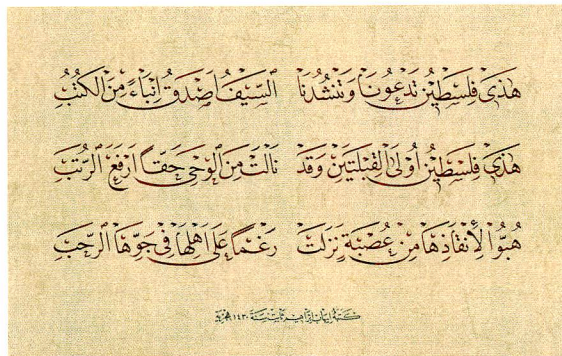 هٰذِي فِلَسْطِينُ تَدْعُونَا وَتَنْشُدُنَا السَّيْفُ اَصْدَقُ اِنْبَاءً مِنَ الكُتُبُ
هٰذِي فِلَسْطِينُ أُولَى القِبْلَتَيْنِ وَقَدْ نَالَتْ مِنَ الوَحْيِ حَقًّا اَرْفَعَ الرُّتَبِ
هُبُّوا لِأَنْقَاذِهَا مِنْ عُصْبَةٍ نَزَلَتْ رَغْمًا عَلَى اَهْلِهَا فِي جَوِّهَا الرَّحْبِ
كتبه ابراهيم سنة ١٤٣٠ هجرية